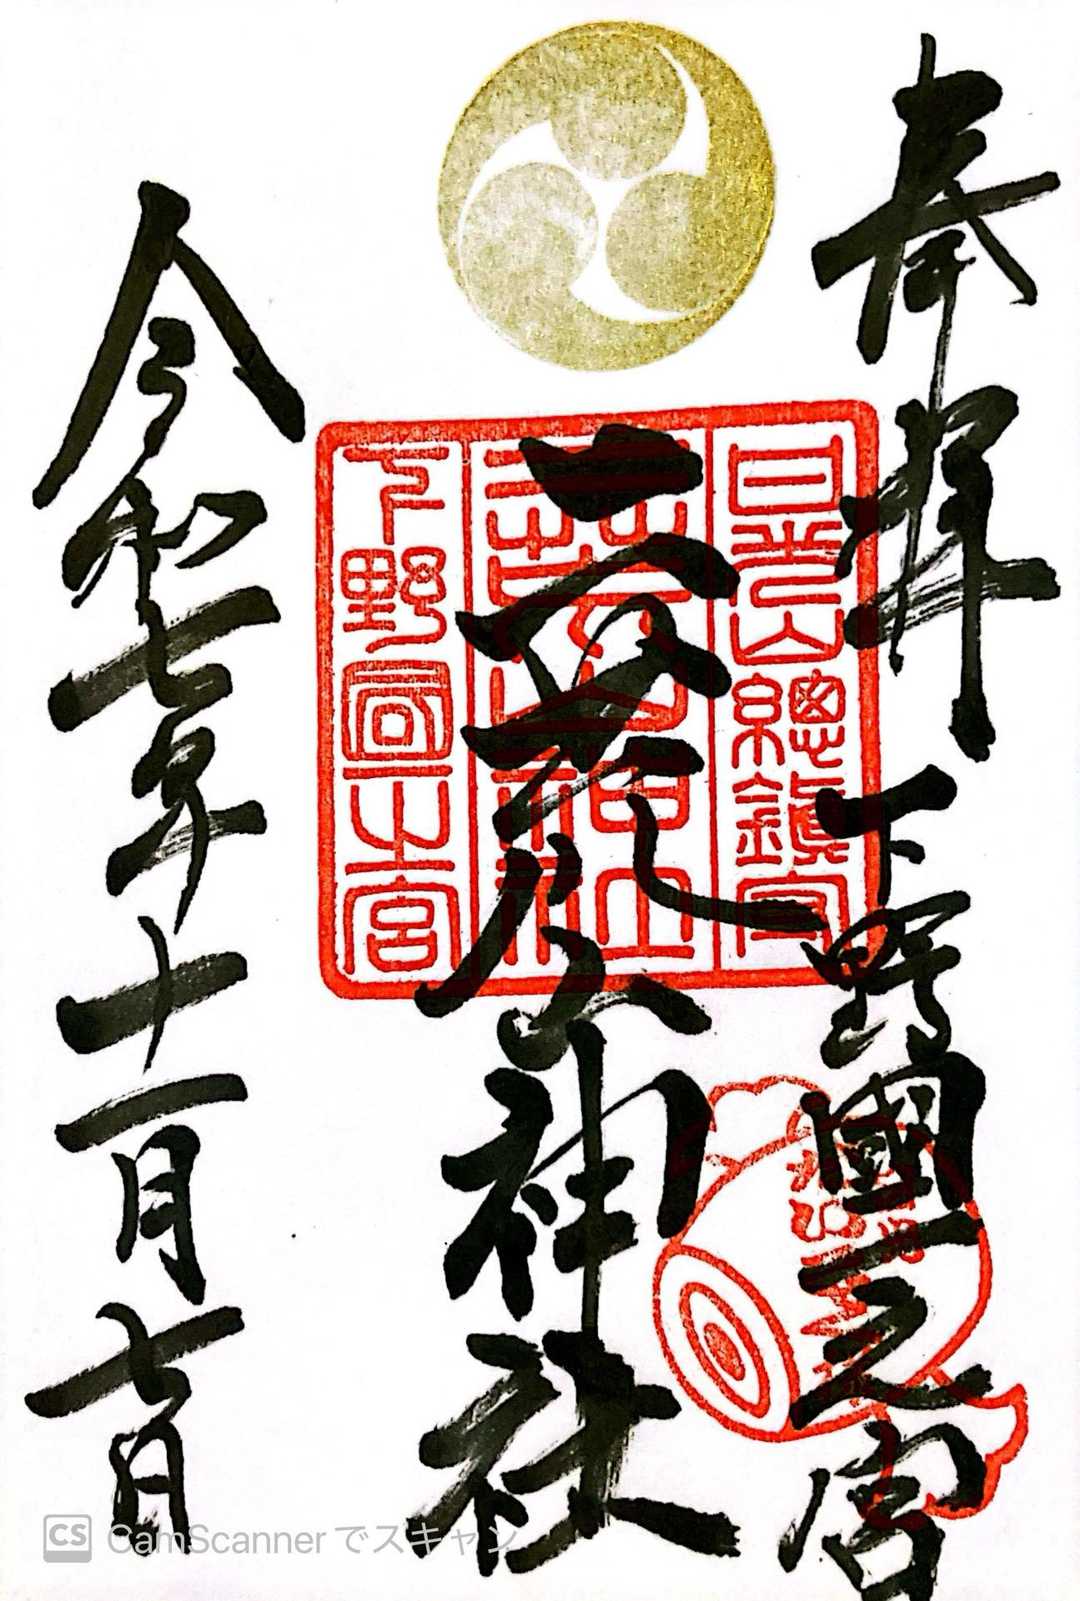 奉拝 下野國一之宮
二荒山神社
令和七年十一月七日
日光山總鎮守
下野國一之宮
CS CamScanner でスキャン